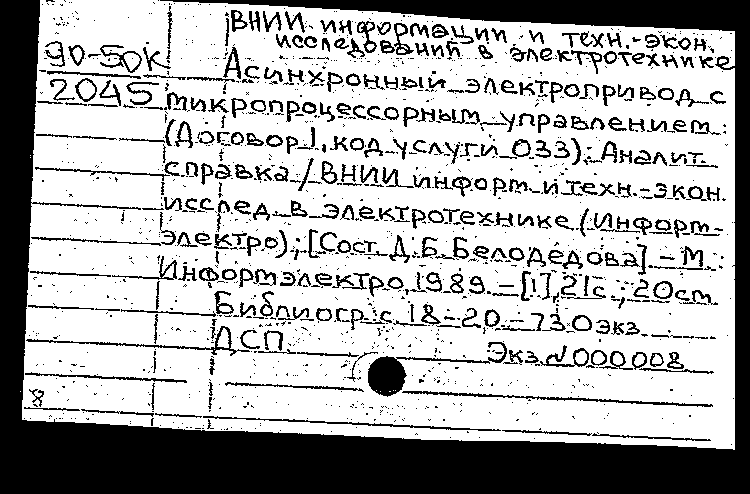 ВНИИ информации и техн.-экон.
исследований в электротехнике
90-5ДК
2045
Асинхронный электропривод с
микропроцессорным управлением:
(Договор 1, код услуги 033): Аналит.
справка / ВНИИ информ. и техн.-экон.
исслед. в электротехнике (Информ-
электро); [Сост. Д. Б. Белодедова]. - М.:
Информэлектро, 1989. - [1], 21 с.; 20 см
Библиогр.: с. 18-20. - 730 экз.
ДСП. Экз. N 000008
8